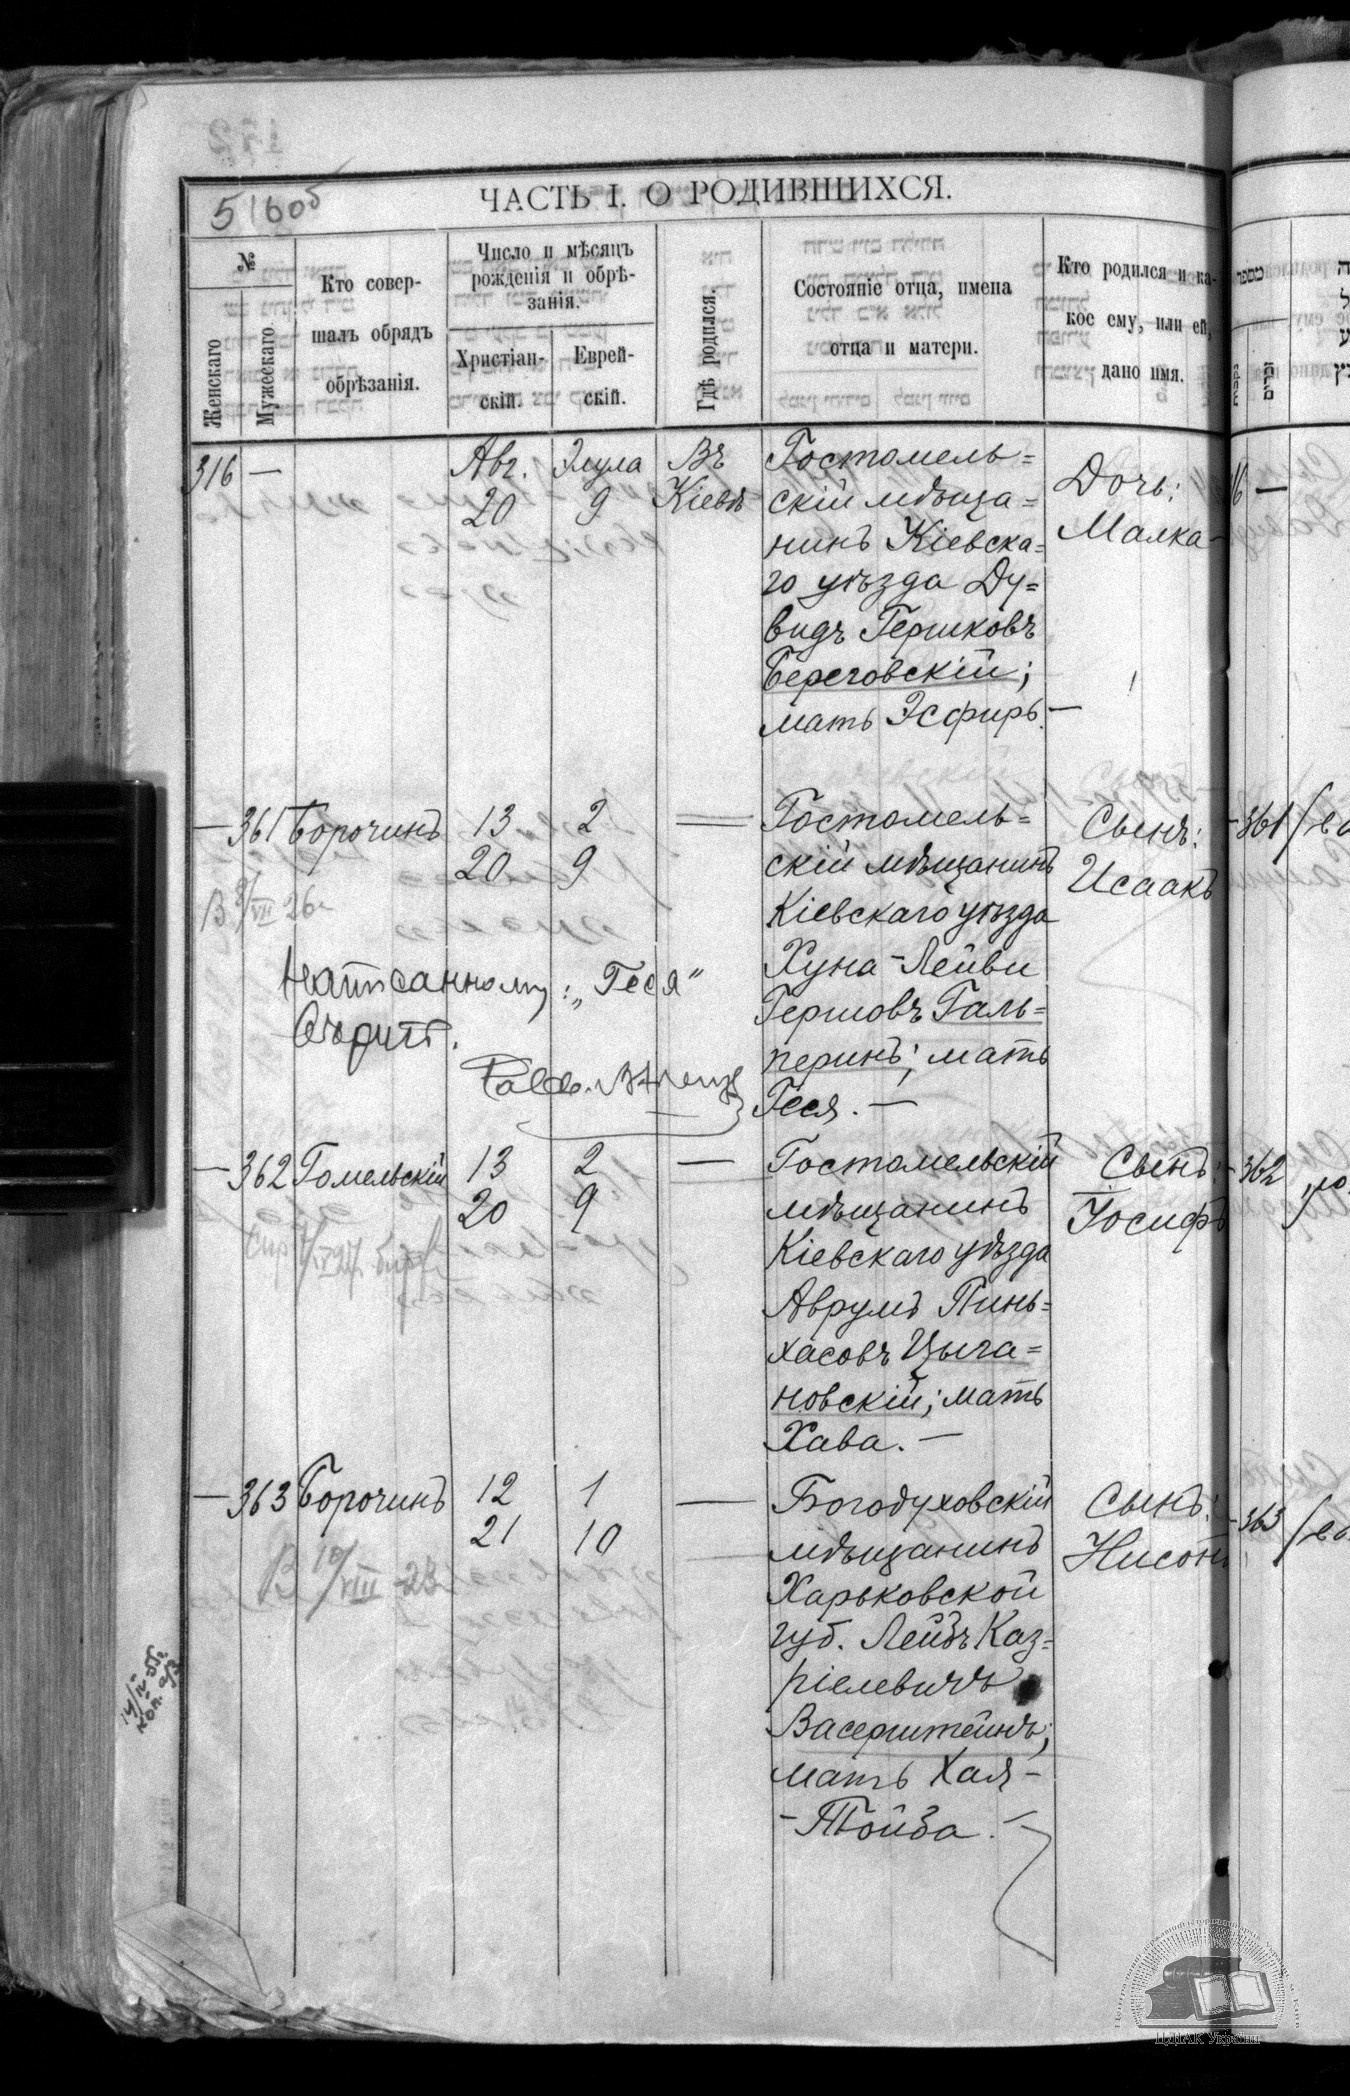 516об
ЧАСТЬ I. О РОДИВШИХСЯ.
№
Женскаго
Мужескаго
Кто совер-
шалъ обрядъ
обрѣзанія.
Число и мѣсяцъ
рожденія и обрѣ-
занія.
Христіан-
скій.
Еврей-
скій.
Гдѣ родился.
Состояніе отца, имена
отца и матери.
Кто родился и ка-
кое ему, или ей,
дано имя.
316 —
Авг.
20
Элула
9
Въ
Кіевѣ
Гостомель=
скій мѣща=
нинъ Кіевска=
го уѣзда Ду=
видъ Гершковъ
Береговскій;
мать Эсфирь. —
Дочь:
Малка
— 361 Борочинъ
13
20
2
9
Гостомель=
скій мѣщанинъ
Кіевскаго уѣзда
Хуна-Лейви
Гершовъ Галь=
перинъ; мать
Геся. —
Сынъ:
Исаакъ
Написанному: „Геся"
вѣрить.
— 362 Гомельскій
13
20
2
9
—
Гостомельскій
мѣщанинъ
Кіевскаго уѣзда
Аврумъ Пинь=
хасовъ Цыга=
новскій; мать
Хава. —
Сынъ:
Іосифъ
— 363 Борочинъ
12
21
1
10
—
Богодуховскій
мѣщанинъ
Харьковской
губ. Лейзъ Каз=
ріелевичъ
Васерштейнъ;
мать Хая-
-Тойба. —
Сынъ:
Нисонъ
מספר
נקבות
זכרים
—
361
362
363
ЦДІАК України